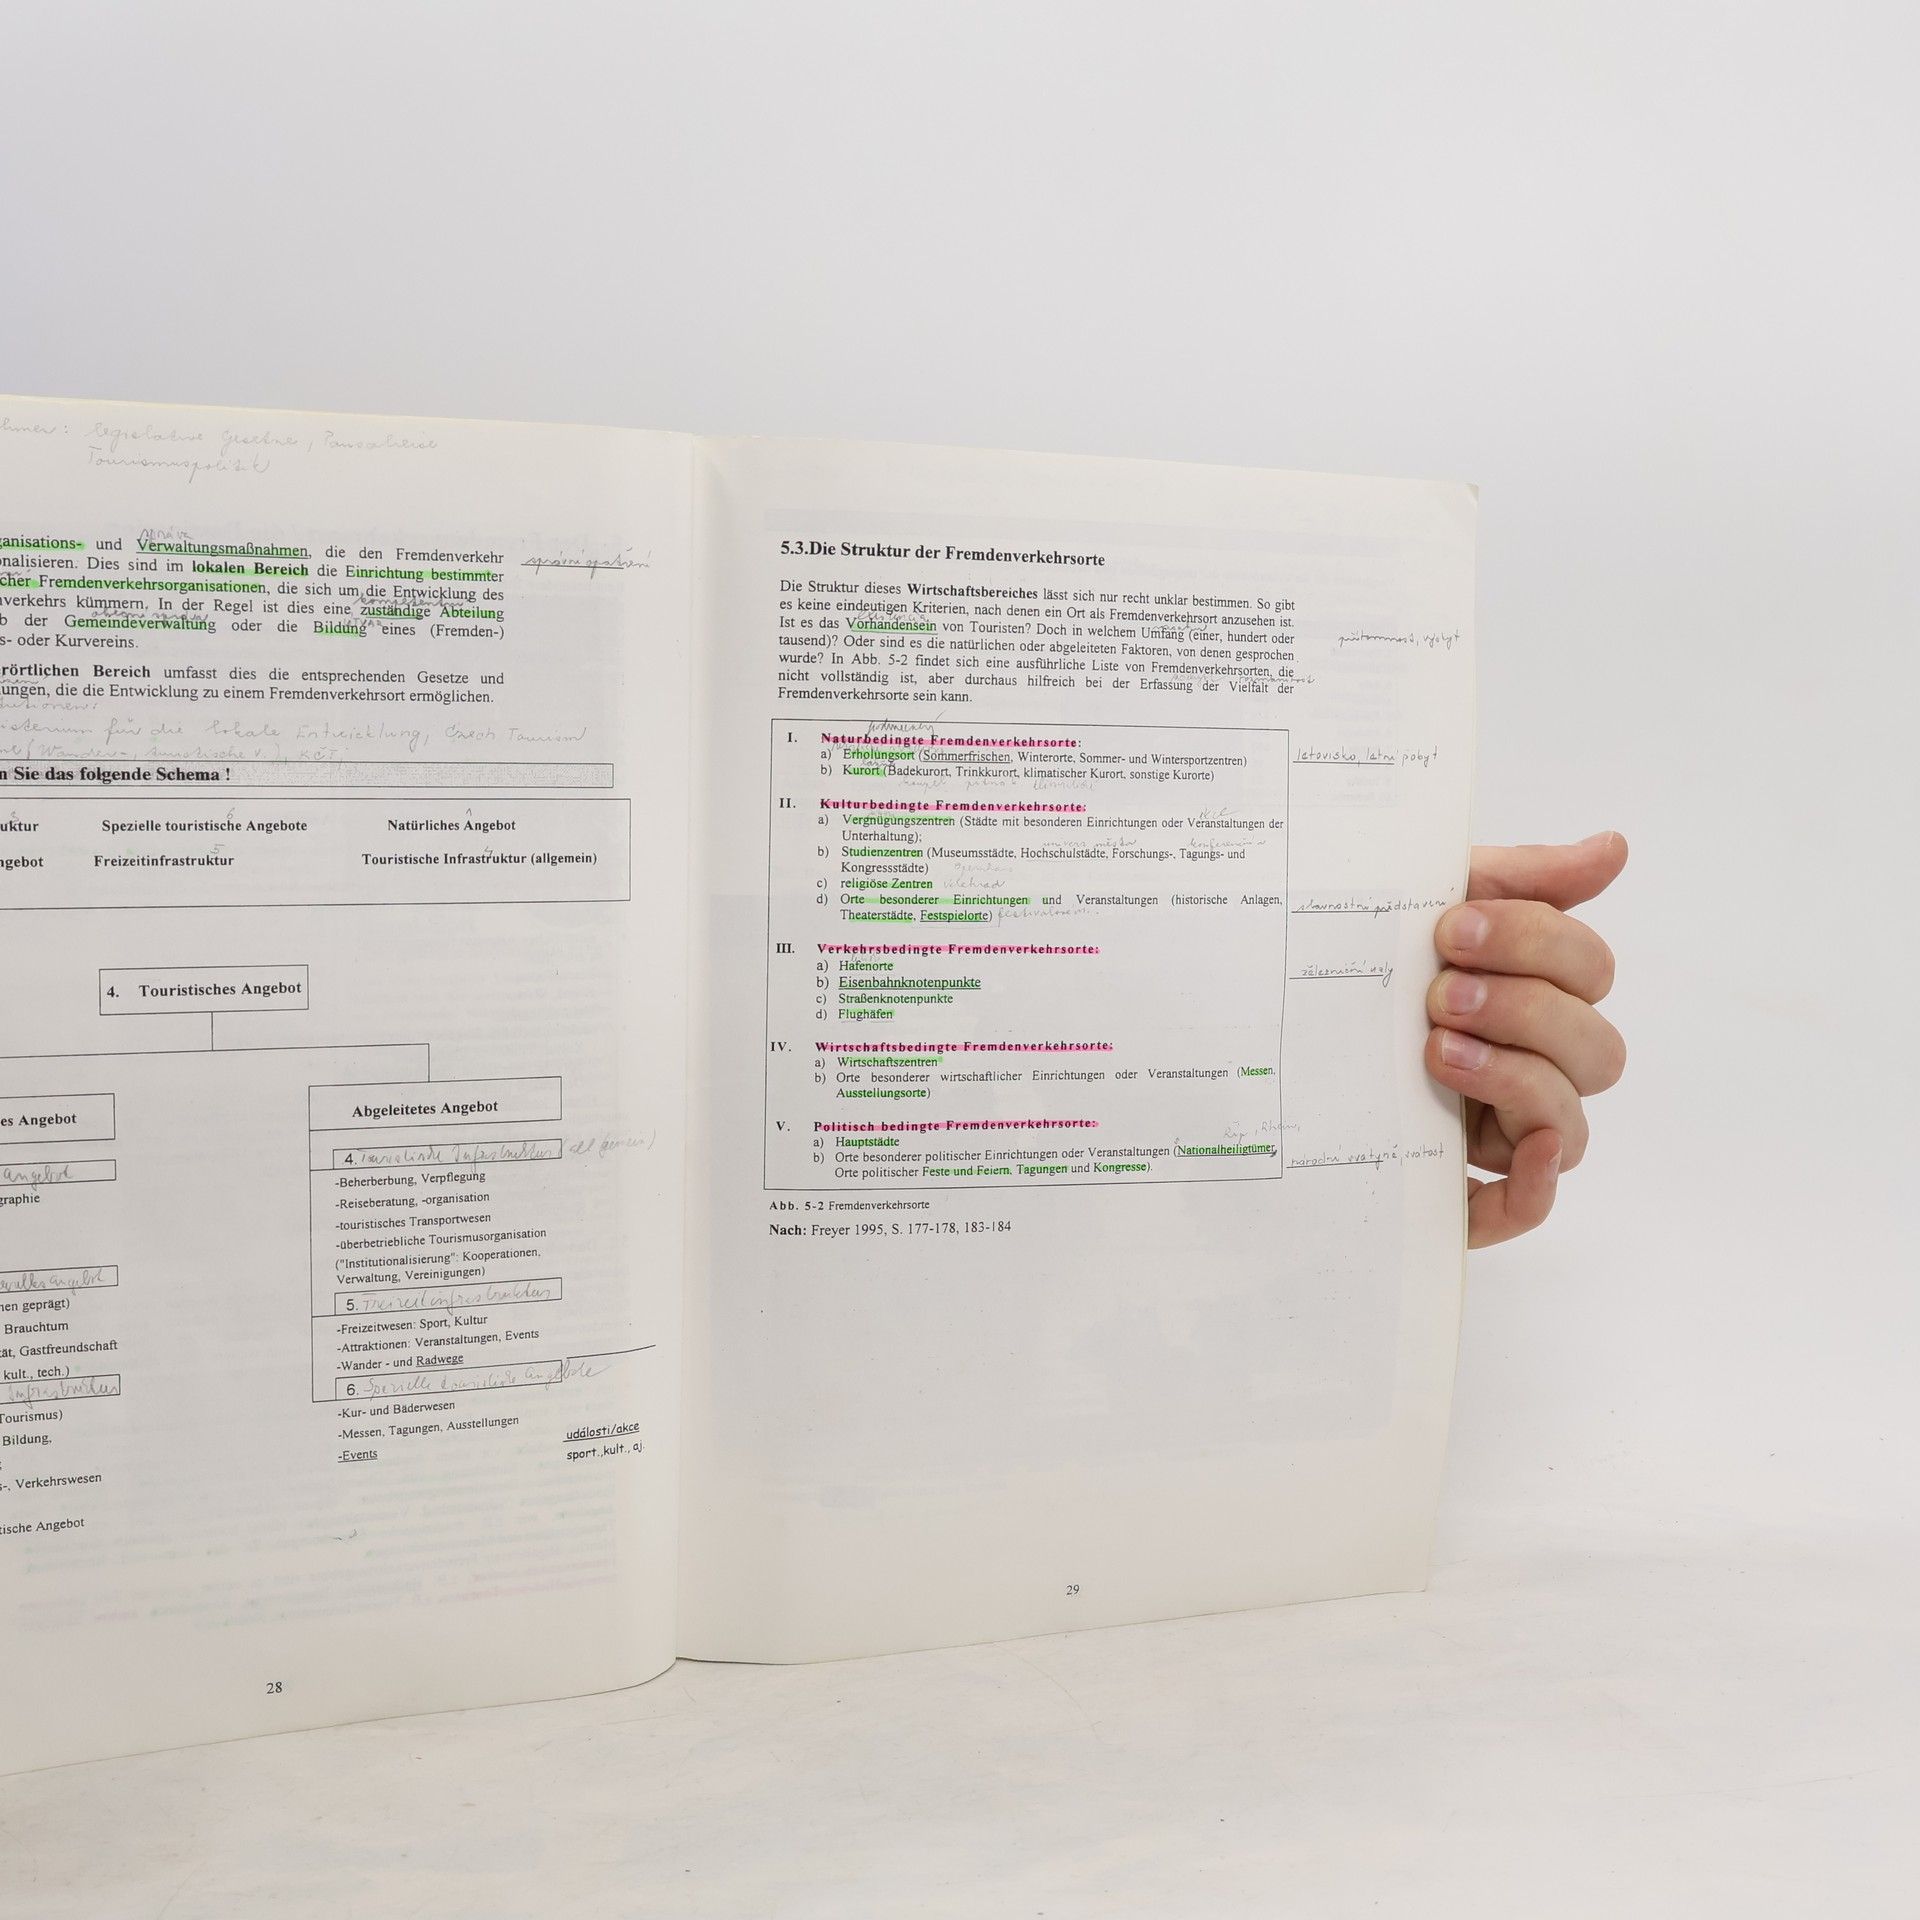 legislative Gesetze, Pauschalreise
Tourismuspolitik
anisations- und Verwaltungsmaßnahmen, die den Fremdenverkehr
onalisieren. Dies sind im lokalen Bereich die Einrichtung bestimmter
cher Fremdenverkehrsorganisationen, die sich um die Entwicklung des
nverkehrs kümmern. In der Regel ist dies eine zuständige Abteilung
b der Gemeindeverwaltung oder die Bildung eines (Fremden-)
s- oder Kurvereins.
rörtlichen Bereich umfasst dies die entsprechenden Gesetze und
ungen, die die Entwicklung zu einem Fremdenverkehrsort ermöglichen.
isterium für die lokale Entwicklung, Czech Tourism
n Sie das folgende Schema !
uktur Spezielle touristische Angebote Natürliches Angebot
ngebot Freizeitinfrastruktur Touristische Infrastruktur (allgemein)
4. Touristisches Angebot
es Angebot
Angebot
graphie
nen geprägt)
Brauchtum
ät, Gastfreundschaft
kult., tech.)
Infrastruktur
Tourismus)
Bildung,
s-, Verkehrswesen
tische Angebot
Abgeleitetes Angebot
4. Touristische Infrastruktur (allgemein)
-Beherberbung, Verpflegung
-Reiseberatung, -organisation
-touristisches Transportwesen
-überbetriebliche Tourismusorganisation
("Institutionalisierung": Kooperationen,
Verwaltung, Vereinigungen)
5. Freizeitinfrastruktur
-Freizeitwesen: Sport, Kultur
-Attraktionen: Veranstaltungen, Events
-Wander - und Radwege
6. Spezielle touristische Angebote
-Kur- und Bäderwesen
-Messen, Tagungen, Ausstellungen
-Events
události/akce
sport.,kult., aj.
28
5.3.Die Struktur der Fremdenverkehrsorte
Die Struktur dieses Wirtschaftsbereiches lässt sich nur recht unklar bestimmen. So gibt
es keine eindeutigen Kriterien, nach denen ein Ort als Fremdenverkehrsort anzusehen ist.
Ist es das Vorhandensein von Touristen? Doch in welchem Umfang (einer, hundert oder
tausend)? Oder sind es die natürlichen oder abgeleiteten Faktoren, von denen gesprochen
wurde? In Abb. 5-2 findet sich eine ausführliche Liste von Fremdenverkehrsorten, die
nicht vollständig ist, aber durchaus hilfreich bei der Erfassung der Vielfalt der
Fremdenverkehrsorte sein kann.
přítomnost, výskyt
I. Naturbedingte Fremdenverkehrsorte:
a) Erholungsort (Sommerfrischen, Winterorte, Sommer- und Wintersportzentren)
letovisko, letní pobyt
b) Kurort (Badekurort, Trinkkurort, klimatischer Kurort, sonstige Kurorte)
II. Kulturbedingte Fremdenverkehrsorte:
a) Vergnügungszentren (Städte mit besonderen Einrichtungen oder Veranstaltungen der
Unterhaltung);
b) Studienzentren (Museumsstädte, Hochschulstädte, Forschungs-, Tagungs- und
Kongressstädte)
c) religiöse Zentren Velehrad
d) Orte besonderer Einrichtungen und Veranstaltungen (historische Anlagen,
slavnostní představení
Theaterstädte, Festspielorte)
III. Verkehrsbedingte Fremdenverkehrsorte:
a) Hafenorte
b) Eisenbahnknotenpunkte
železniční uzly
c) Straßenknotenpunkte
d) Flughäfen
IV. Wirtschaftsbedingte Fremdenverkehrsorte:
a) Wirtschaftszentren
b) Orte besonderer wirtschaftlicher Einrichtungen oder Veranstaltungen (Messen,
Ausstellungsorte)
V. Politisch bedingte Fremdenverkehrsorte:
a) Hauptstädte
b) Orte besonderer politischer Einrichtungen oder Veranstaltungen (Nationalheiligtümer,
národní svatyně, svátost
Orte politischer Feste und Feiern, Tagungen und Kongresse).
Abb. 5-2 Fremdenverkehrsorte
Nach: Freyer 1995, S. 177-178, 183-184
29